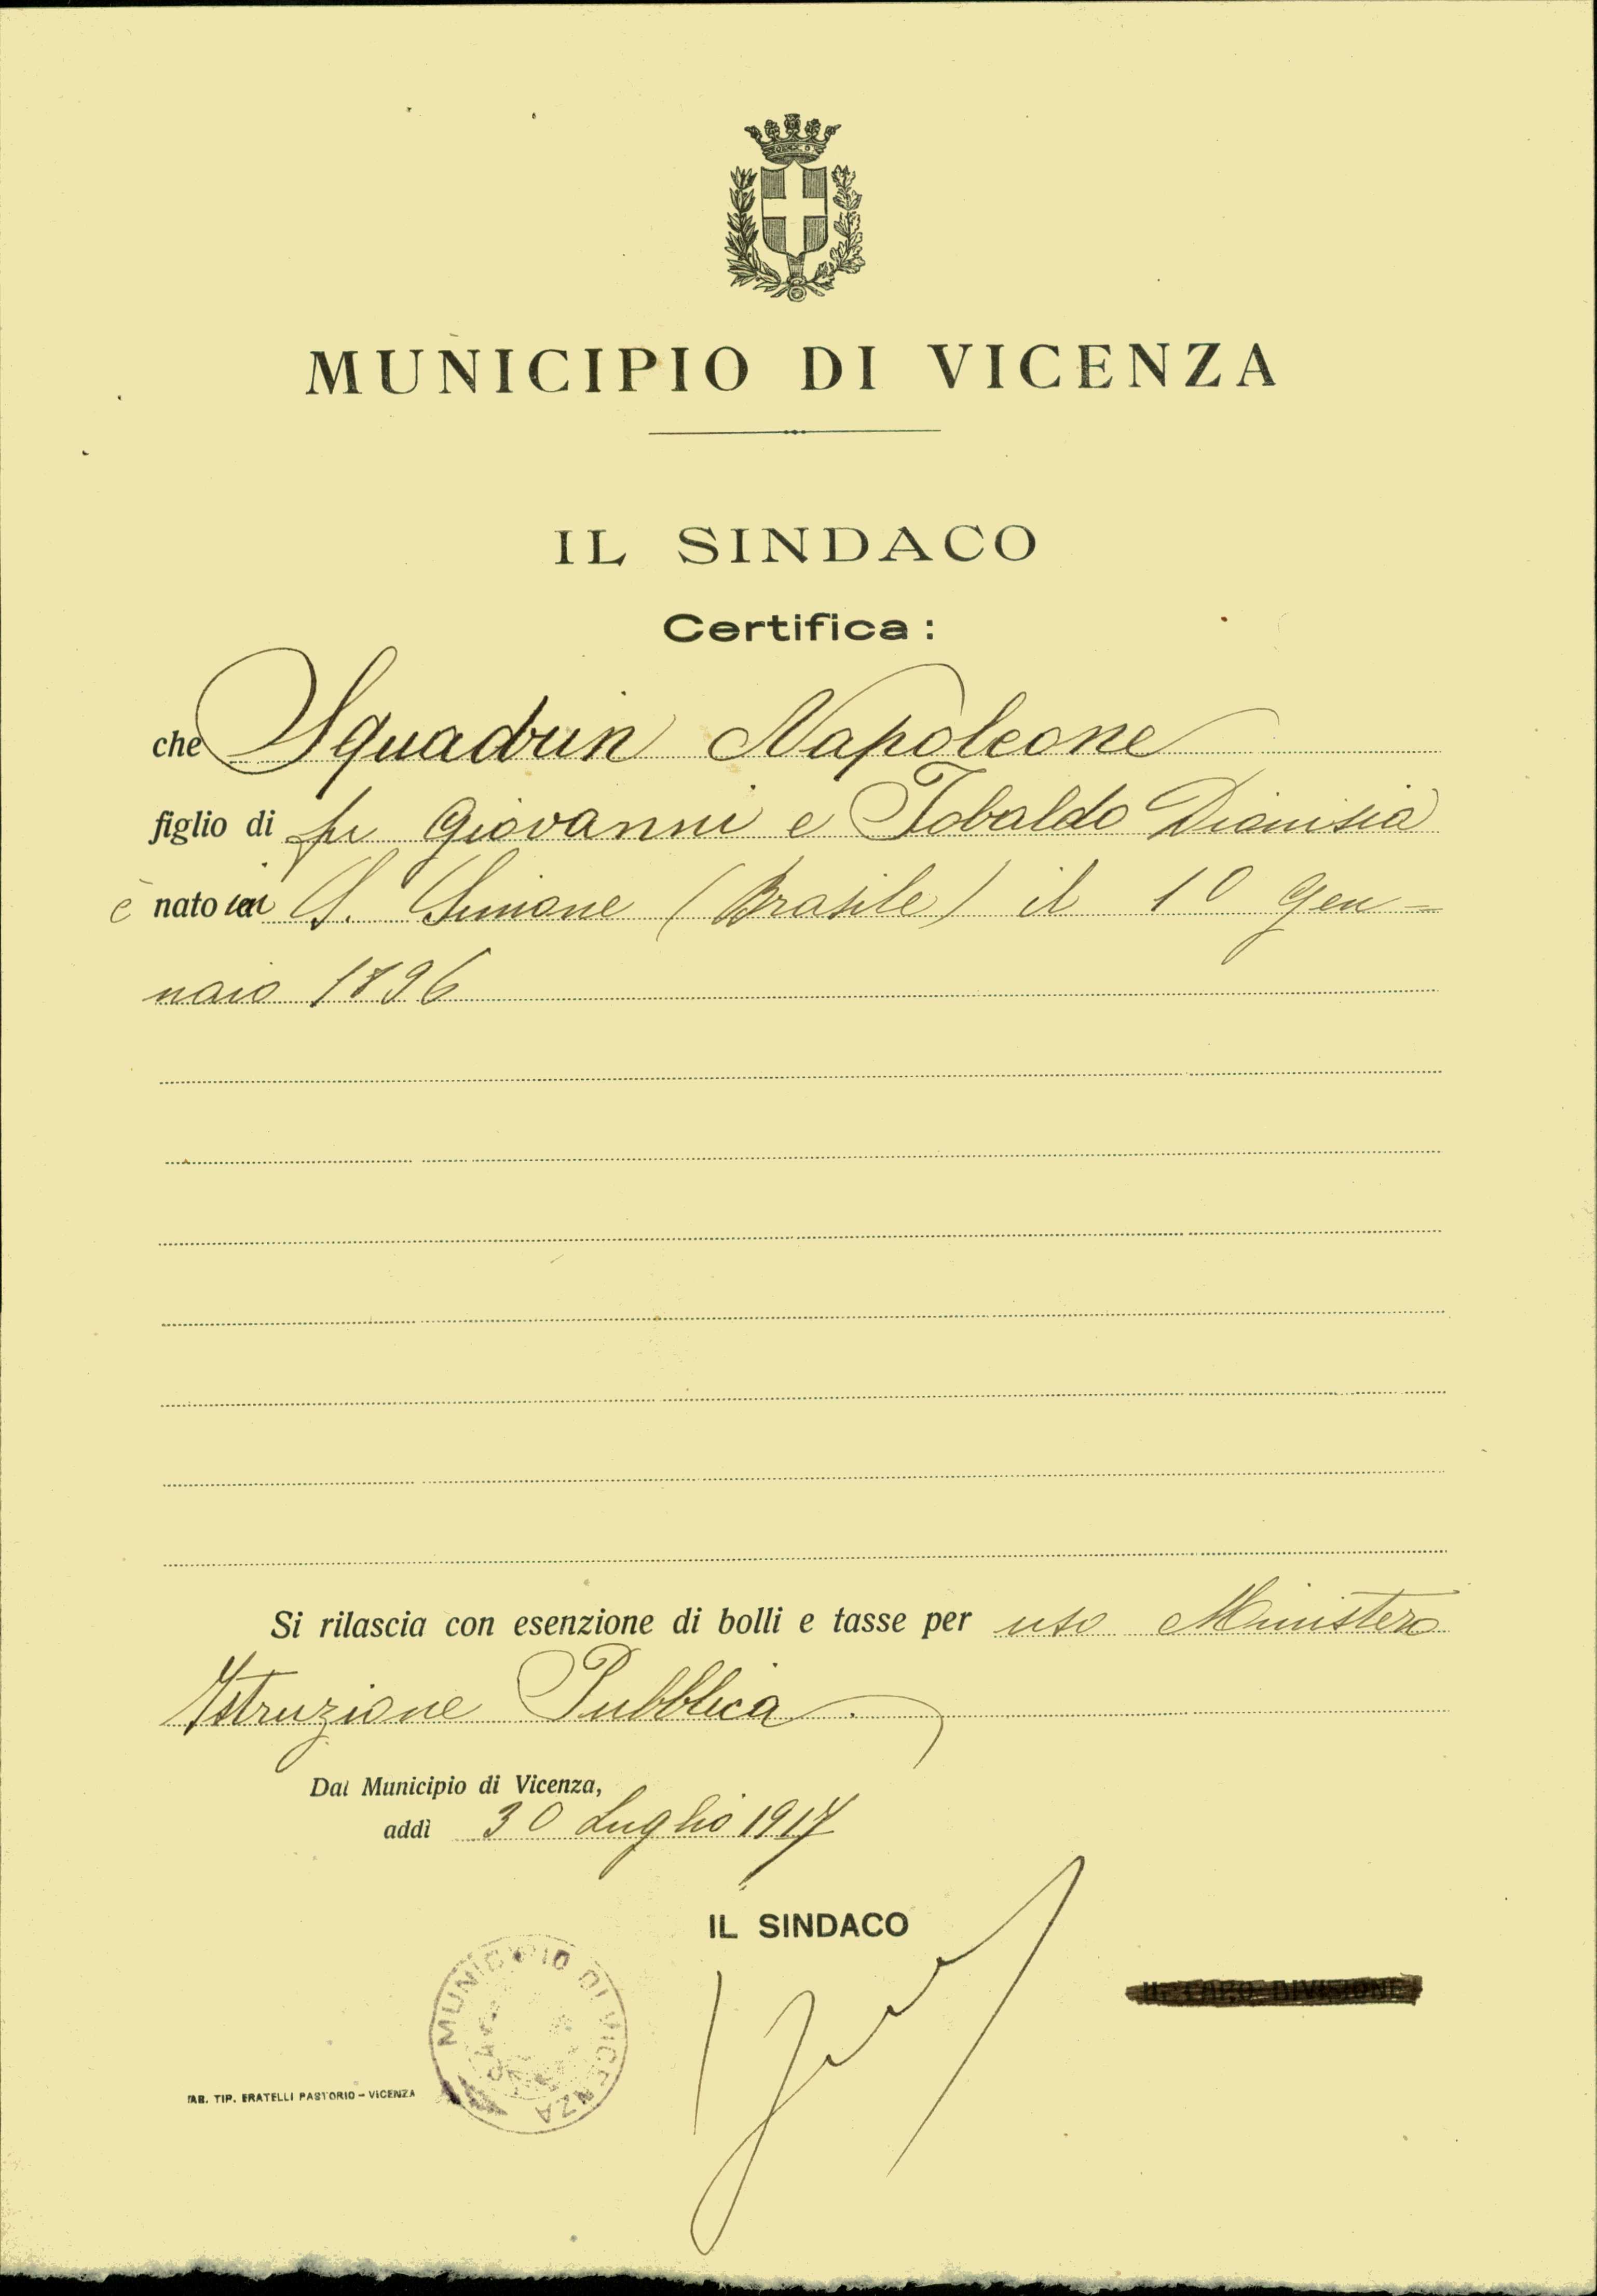 MUNICIPIO DI VICENZA
IL SINDACO
Certifica :
che Squadrin Napoleone
figlio di fu Giovanni e Tobaldo Dionisia
è nato in S. Simone (Brasile) il 10 Gen=
naio 1896
Si rilascia con esenzione di bolli e tasse per uso Ministero
Istruzione Pubblica.
Dal Municipio di Vicenza,
addì 30 Luglio 1917
IL SINDACO
IL CAPO DIVISIONE
MUNICIPIO DI VICENZA
TAB. TIP. FRATELLI PASTORIO - VICENZA